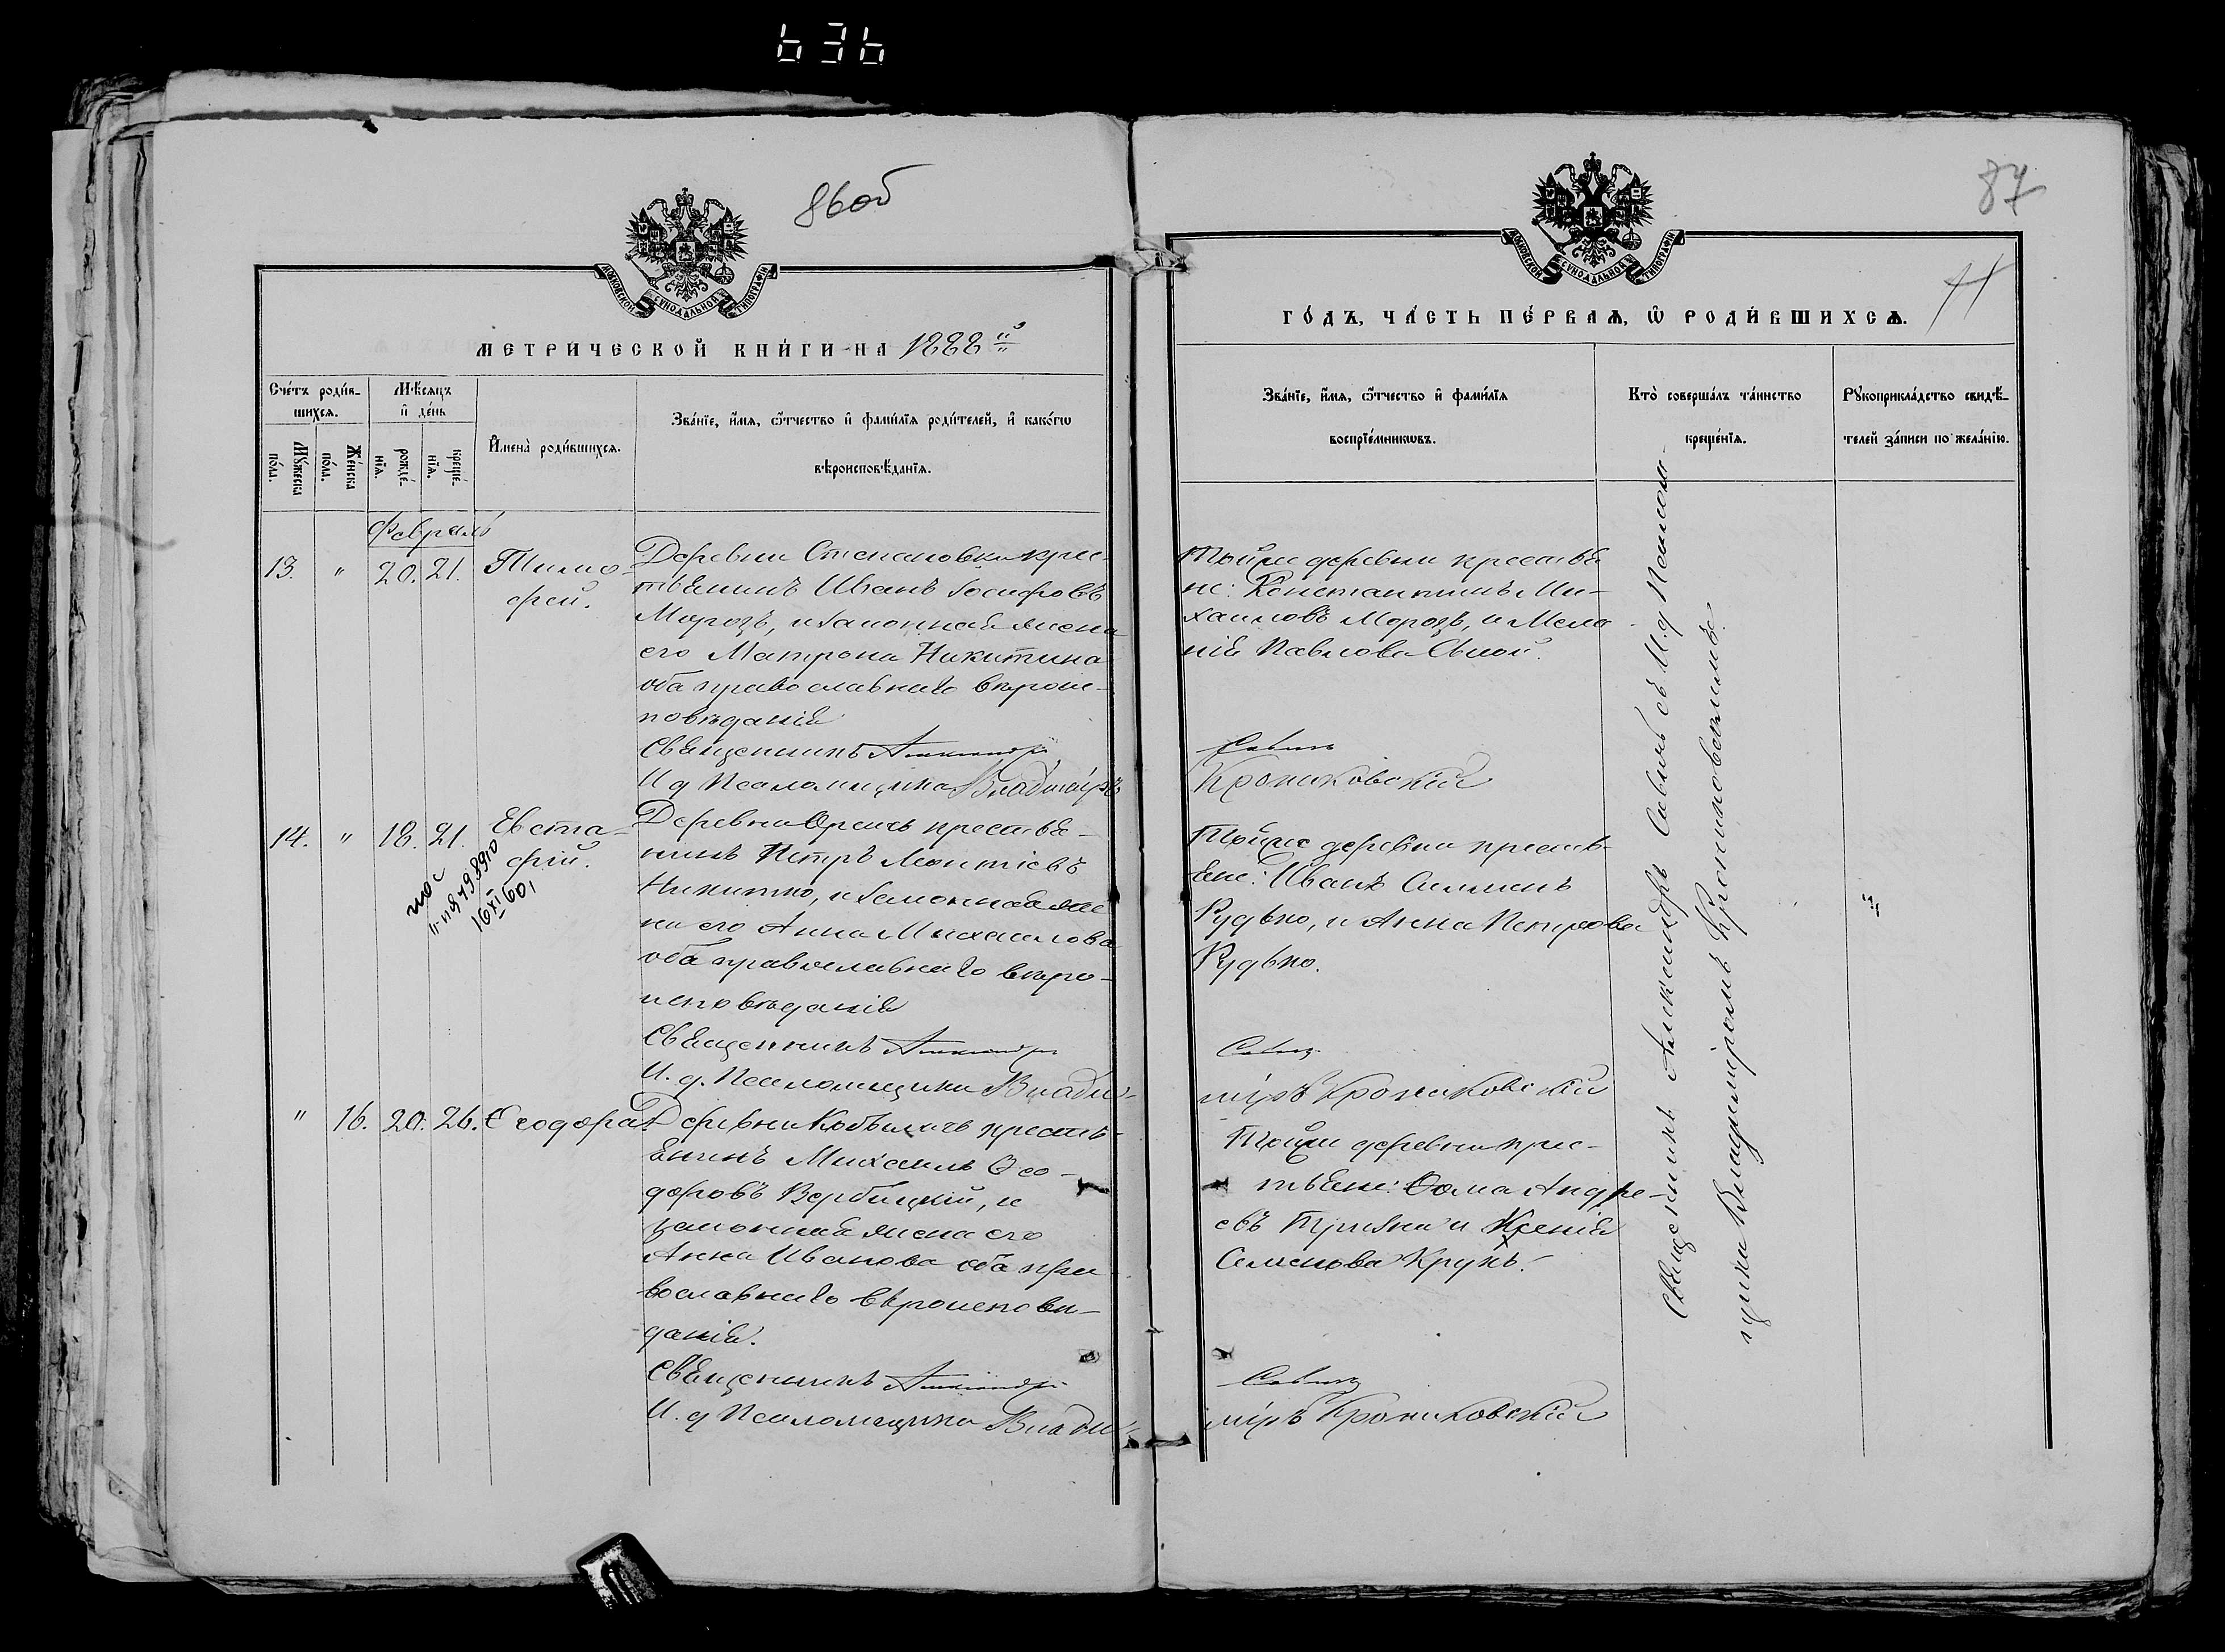 636
86об
МОСКОВСКОЙ СУНОДАЛЬНОЙ ТИПОГРАФІИ
МЕТРИЧЕСКОЙ КНИГИ НА 1888й
Счетъ родив-
шихся.
Мѣсяцъ
и день
Мужеска
пола.
Женска
пола.
рожде-
нія.
креще-
нія.
Имена родившихся.
Званіе, имя, отчество и фамилія родителей, и какого
вѣроисповѣданія.
Февраль
13. " 20. 21. Тимо-
фей.
Деревни Степановки крес-
тьянинъ Иванъ Іосифовъ
Морозъ, и законная жена
его Матрона Никитина
оба православнаго вѣроис-
повѣданія
Священникъ Александръ
И д Псаломщика Владиміръ
14. " 18. 21. Евста-
фій.
16 XI 60
Деревни Оресь крестья-
нинъ Петръ Леонтіевъ
Никитко, и законная же-
на его Анна Михаилова
оба православнаго вѣро-
исповѣданія
Священникъ Александръ
И. д. Псаломщика Влади-
" 16. 20. 26. Ѳеодора.
Деревни Кобыличь кресть-
янинъ Михаилъ Ѳео-
доровъ Вербицкій, и
законная жена его
Анна Иванова оба пра-
вославнаго вѣроисповѣ-
данія.
Священникъ Александръ
И. д Псаломщика Влади-
87
МОСКОВСКОЙ СУНОДАЛЬНОЙ ТИПОГРАФІИ
ГОДЪ, ЧАСТЬ ПЕРВАЯ, Ѡ РОДИВШИХСЯ.
Званіе, имя, отчество и фамилія
воспріемниковъ.
Кто совершалъ таинство
крещенія.
Рукоприкладство свидѣ-
телей записи по желанію.
Тойже деревни крестья
не: Константинъ Ми-
хаиловъ Морозъ, и Мела
нія Павлова
Савичъ
Крониковскій
Тойже деревни кресть-
яне: Иванъ
Рудько, и Анна Петрова
Рудько.
Савичъ
міръ Крониковскій
Тойже деревни крес-
тьяне: Ѳома Андре-
евъ и Ксенія
Семенова Крукъ.
Савичъ
міръ Крониковскій
Священникъ Александръ Савичъ съ И.д Псаломщ-
щика Владиміромъ Крониковскимъ.